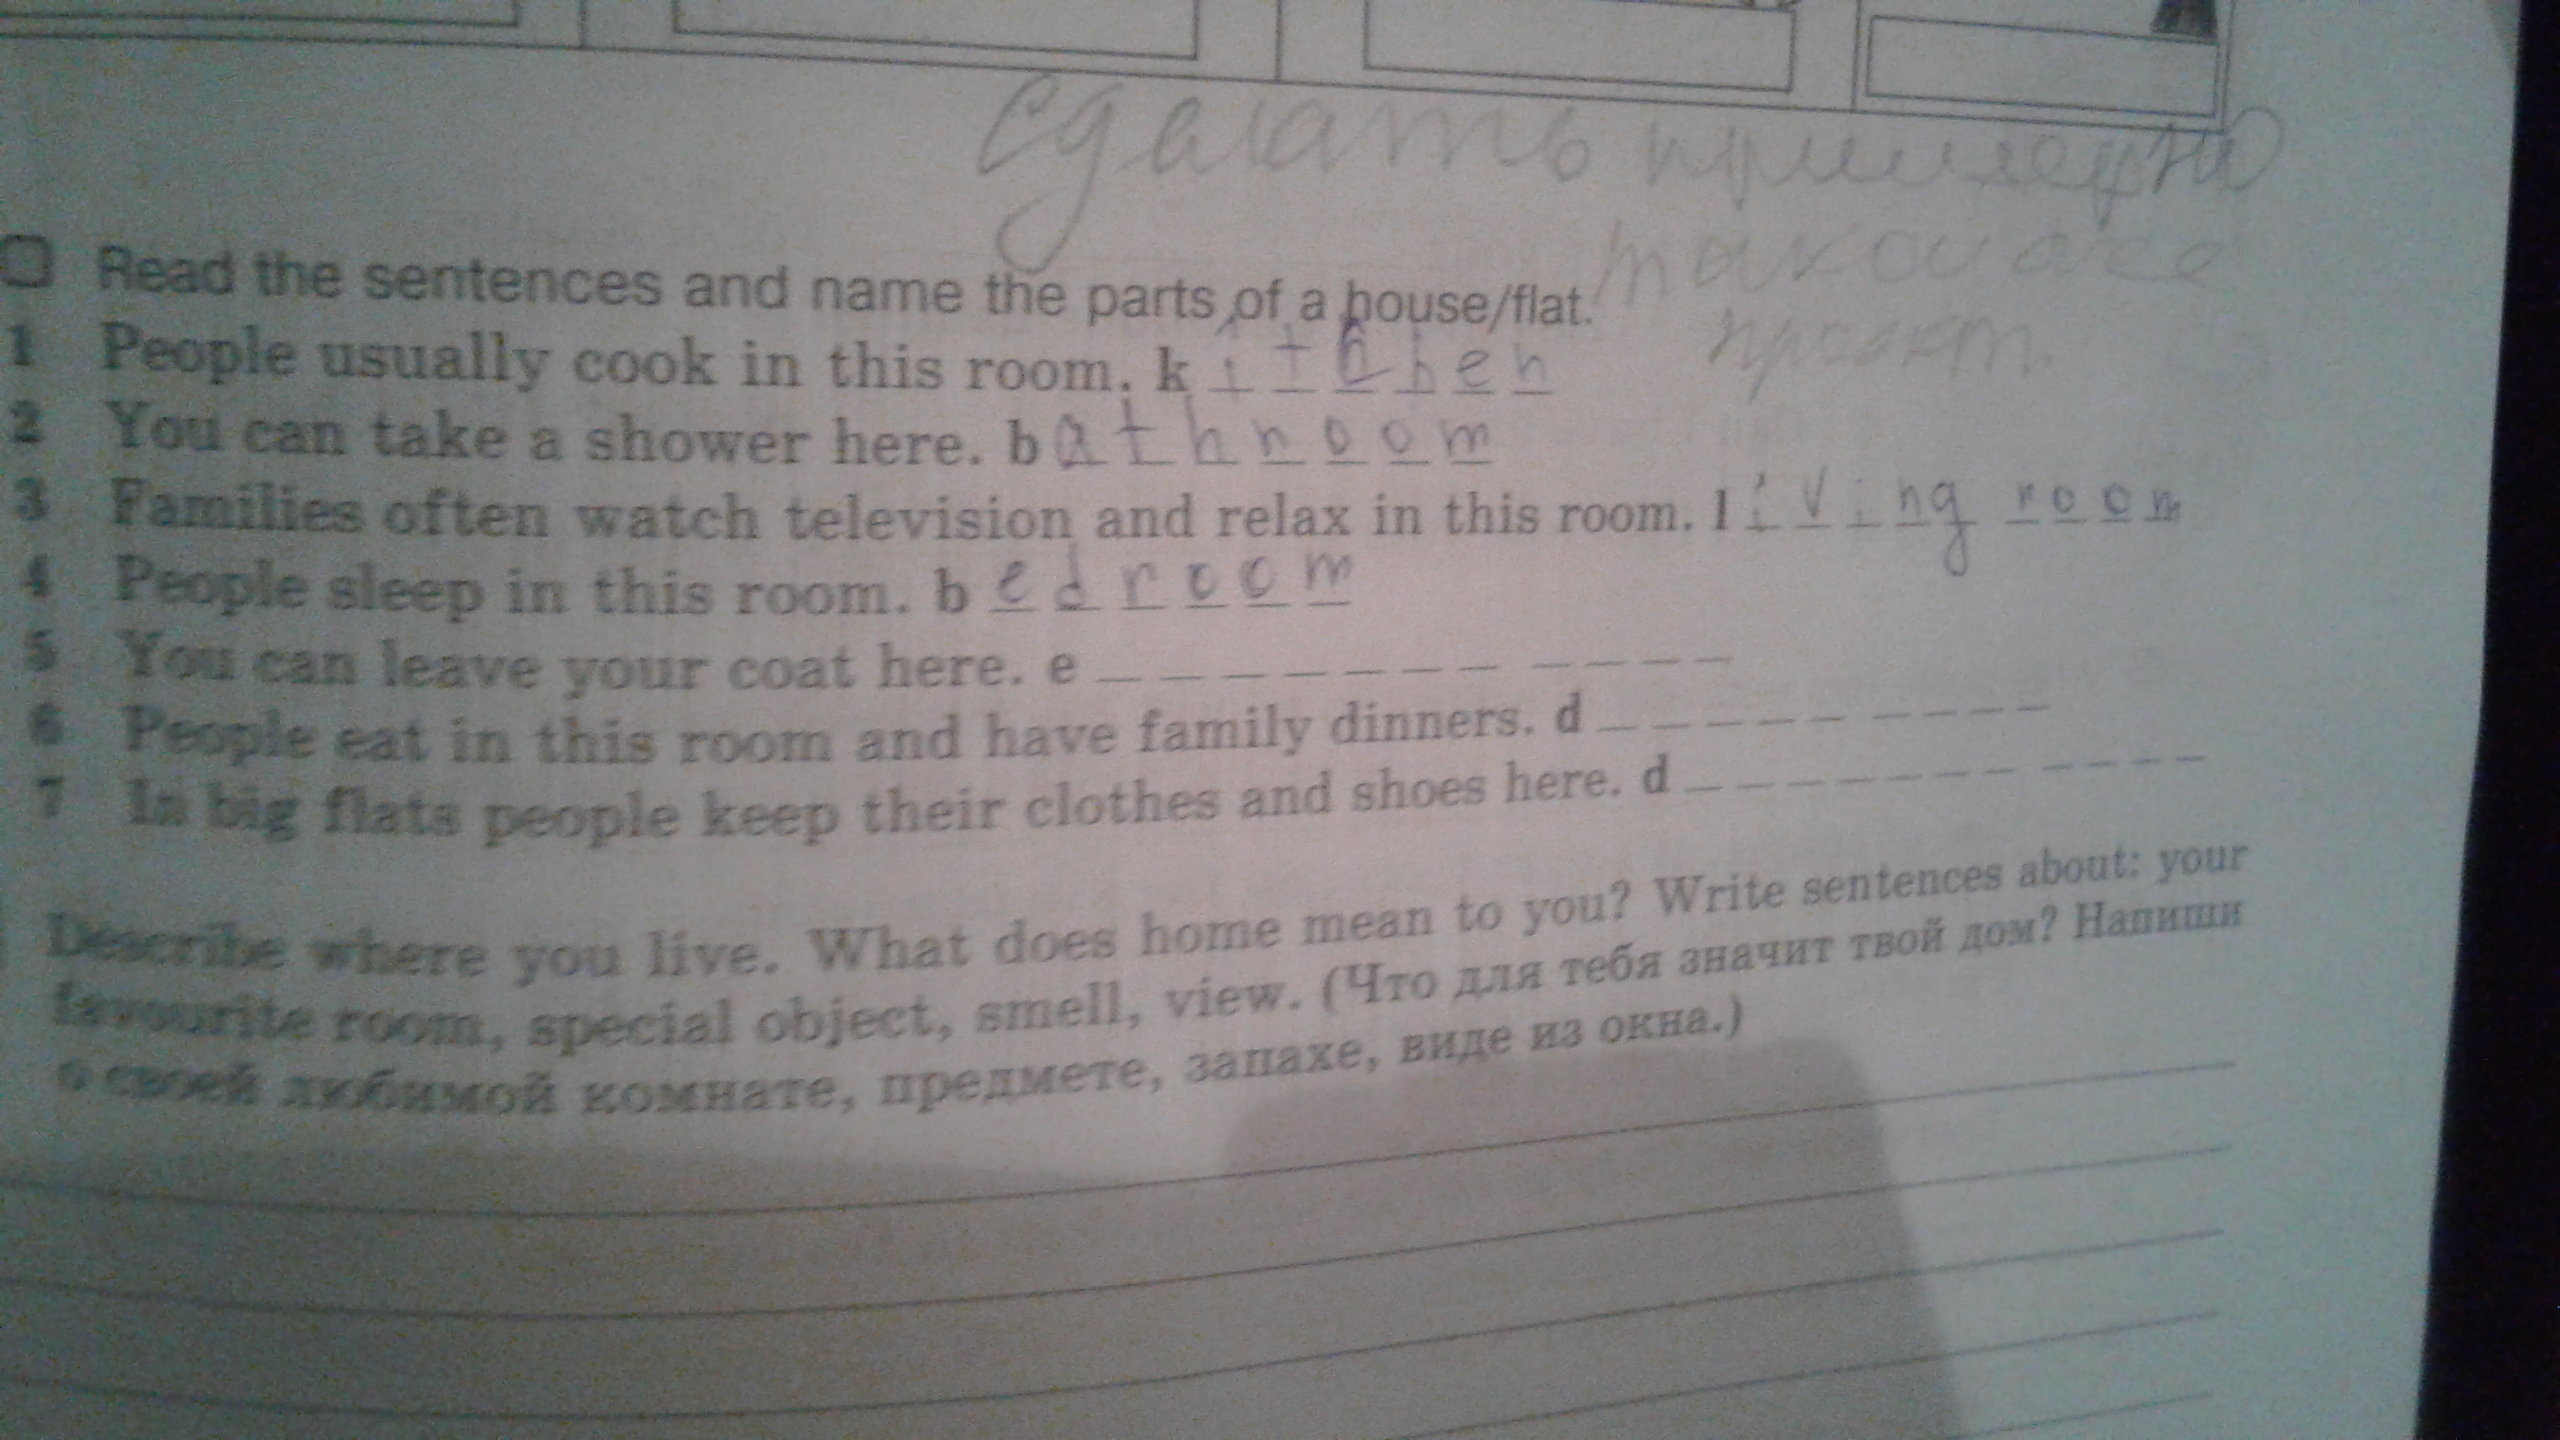 Сделать примерно
такой же
проект.
Read the sentences and name the parts of a house/flat.
1 People usually cook in this room. kitchen
2 You can take a shower here. bathroom
3 Families often watch television and relax in this room. living room
4 People sleep in this room. bedroom
5 You can leave your coat here. e _ _ _ _ _ _ _ _ _ _ _ _
6 People eat in this room and have family dinners. d _ _ _ _ _ _ _ _ _
7 In big flats people keep their clothes and shoes here. d _ _ _ _ _ _ _ _ _ _ _
Describe where you live. What does home mean to you? Write sentences about: your
favourite room, special object, smell, view. (Что для тебя значит твой дом? Напиши
о своей любимой комнате, предмете, запахе, виде из окна.)